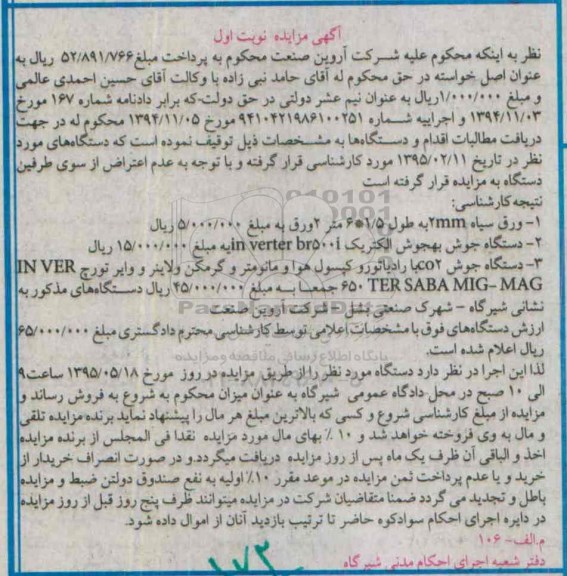 آگهی مزایده نوبت اول
نظر به اینکه محکوم علیه شرکت آروین صنعت محکوم به پرداخت مبلغ ۵۲/۸۹۱/۷۶۶ ریال به
عنوان اصل خواسته در حق محکوم له آقای حامد نبی زاده با وکالت آقای حسین احمدی عالمی
و مبلغ ۱/۰۰۰/۰۰۰ریال به عنوان نیم عشر دولتی در حق دولت-که برابر دادنامه شماره ۱۶۷ مورخ
۱۳۹۴/۱۱/۰۳ و اجراییه شماره ۹۴۱۰۴۲۱۹۸۶۱۰۰۲۵۱ مورخ ۱۳۹۴/۱۱/۰۵ محکوم له در جهت
دریافت مطالبات اقدام و دستگاهها به مشخصات ذیل توقیف نموده است که دستگاههای مورد
نظر در تاریخ ۱۳۹۵/۰۲/۱۱ مورد کارشناسی قرار گرفته و با توجه به عدم اعتراض از سوی طرفین
دستگاه به مزایده قرار گرفته است
نتیجه کارشناسی:
۱- ورق سیاه ۲mmبه طول ۶*۱/۵ متر ۲ورق به مبلغ ۵/۰۰۰/۰۰۰ ریال
۲- دستگاه جوش بهجوش الکتریک in verter br۵۰۰iبه مبلغ ۱۵/۰۰۰/۰۰۰ ریال
۳- دستگاه جوش co۲با رادیاتورو کپسول هوا و مانومتر و گرمکن ولاینر و وایر تورچ IN VER
TER SABA MIG- MAG ۶۵۰ جمعا به مبلغ ۴۵/۰۰۰/۰۰۰ ریال دستگاههای مذکور به
نشانی شیرگاه - شهرک صنعتی بشل - شرکت آروین صنعت
ارزش دستگاههای فوق با مشخصات اعلامی توسط کارشناسی محترم دادگستری مبلغ ۶۵/۰۰۰/۰۰۰
ریال اعلام شده است.
لذا این اجرا در نظر دارد دستگاه مورد نظر را از طریق مزایده در روز مورخ ۱۳۹۵/۰۵/۱۸ ساعت۹
الی ۱۰ صبح در محل دادگاه عمومی شیرگاه به عنوان میزان محکوم به شروع به فروش رساند و
مزایده از مبلغ کارشناسی شروع و کسی که بالاترین مبلغ هر مال را پیشنهاد نماید برنده مزایده تلقی
و مال به وی فروخته خواهد شد و ۱۰ ٪ بهای مال مورد مزایده نقدا فی المجلس از برنده مزایده
اخذ و الباقی آن ظرف یک ماه پس از روز مزایده دریافت میگردد.و در صورت انصراف خریدار از
خرید و یا عدم پرداخت ثمن مزایده در موعد مقرر ۱۰٪ اولیه به نفع صندوق دولتن ضبط و مزایده
باطل و تجدید می گردد ضمنا متقاضیان شرکت در مزایده میتوانند ظرف پنج روز قبل از روز مزایده
در دایره اجرای احکام سوادکوه حاضر تا ترتیب بازدید آنان از اموال داده شود.
م.الف- ۱۰۶
دفتر شعبه اجرای احکام مدنی شیرگاه
۱۷۳